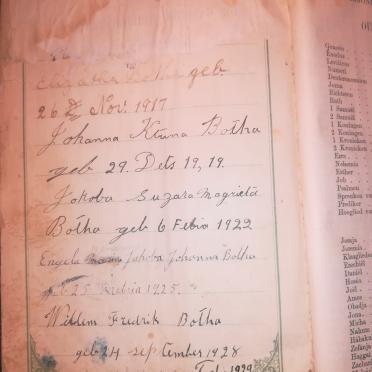 geb.
26 Nov. 1917
Johanna Botha
geb 29. Dets 19, 19.
Jakoba Suzara Magrieta
Botha geb 6 Febia 1922
Engela Jakoba Johanna Botha
geb 25 1925.
Willem Fredrik Botha
geb 24 september 1928
1929
Genesis
Exodus
Leviticus
Numeri
Deuteronomium
Josua
Richteren
Ruth
1 Samuël
2 Samuël
1 Koningen
2 Koningen
1 Kronieken
2 Kronieken
Ezra
Nehemia
Esther
Job
Psalmen
Spreuken va
Prediker
Hooglied va
Jesaja
Jeremia
Klaaglieder
Ezechiël
Daniël
Hosea
Joël
Amos
Obadja
Jona
Micha
Nahum
Habakuk
Zefanja
Haggai
Zacharia